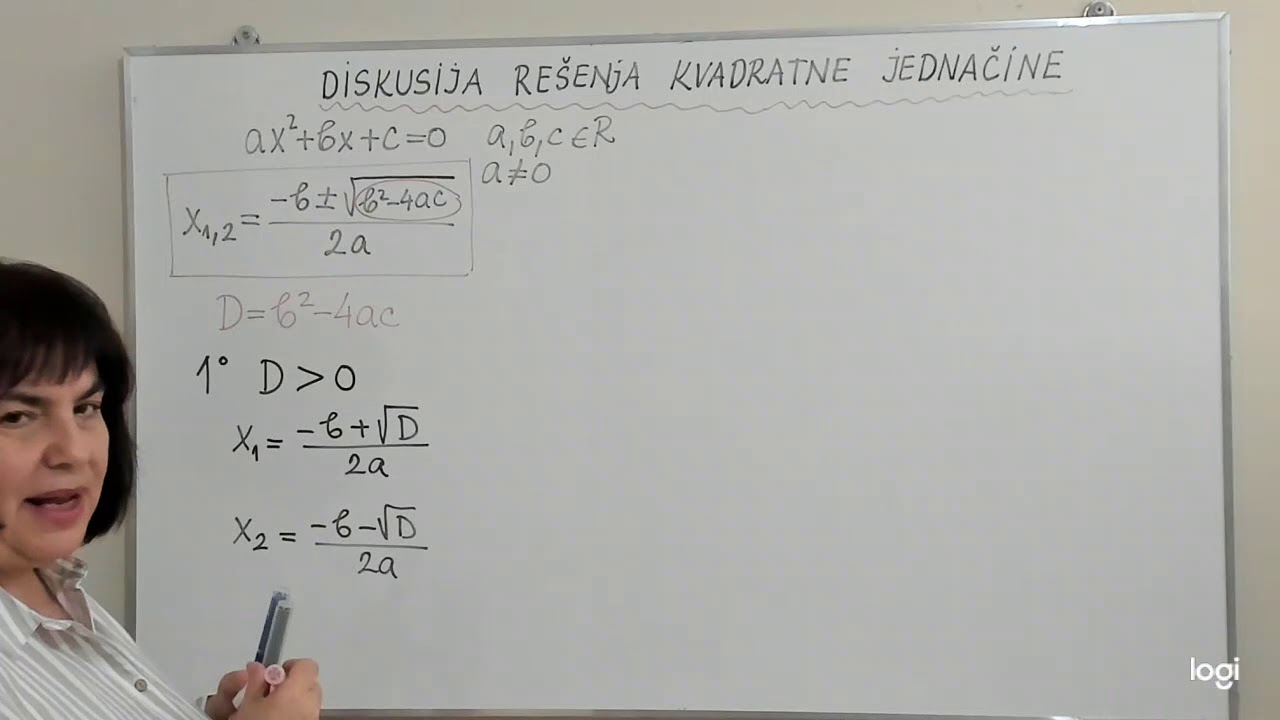 DISKUSIJA REŠENJA KVADRATNE JEDNAČINE
ax²+bx+c=0 a,b,c∈R
a≠0
x₁,₂ = (-b±√(b²-4ac))/(2a)
D=b²-4ac
1° D>0
x₁ = (-b+√D)/(2a)
x₂ = (-b-√D)/(2a)
logi